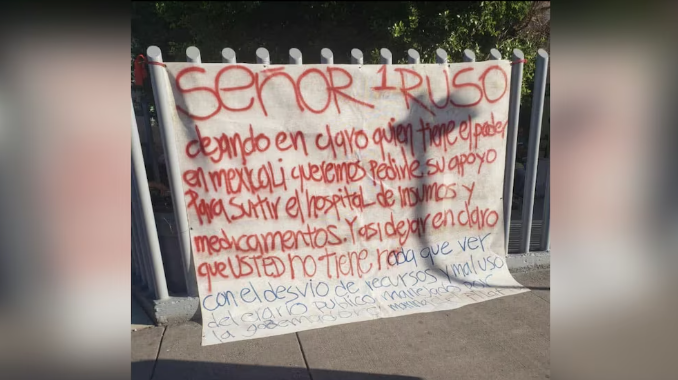 SEÑOR 1 RUSO
dejando en claro quien tiene el poder
en mexicali queremos pedirle su apoyo
Para surtir el hospital de insumos y
medicamentos. Y asi dejar en claro
que USTED no tiene nada que ver
con el desvio de recursos y mal uso
del erario publico
la gobernadora